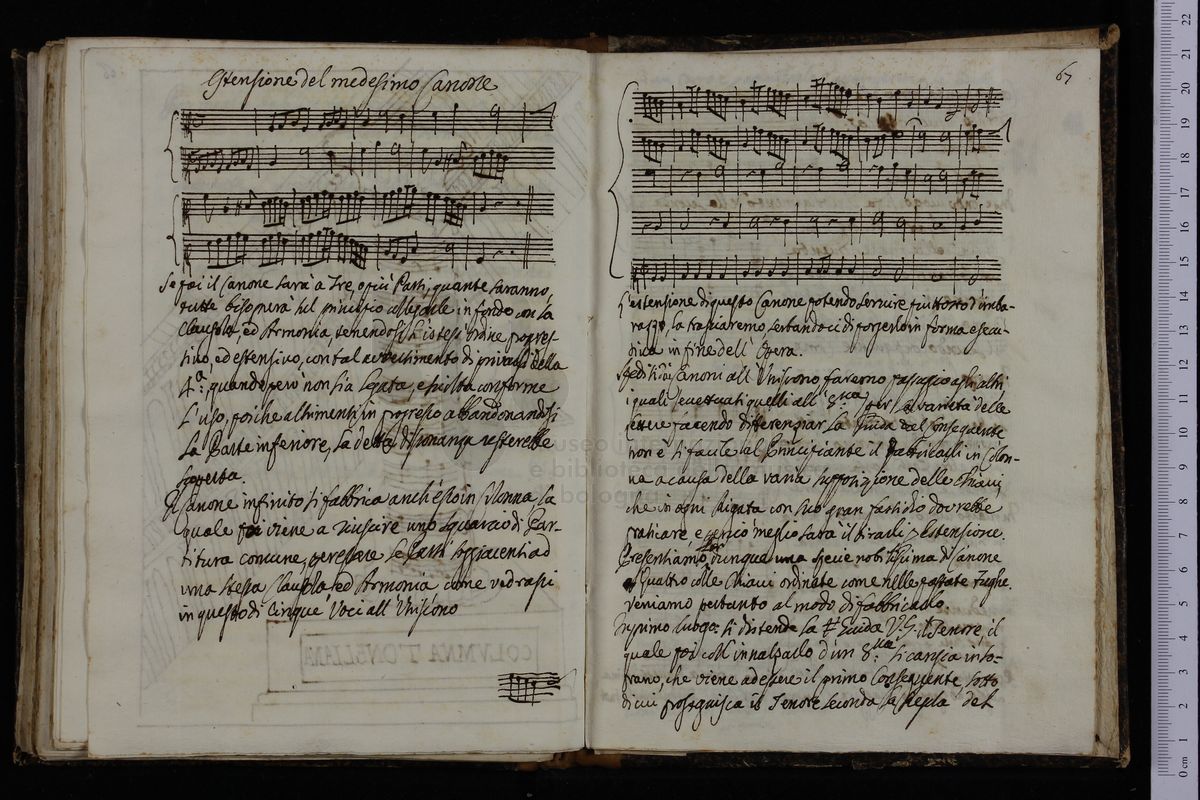 Estensione del medesimo Canone
Se poi il Canone sarà a Tre, o più Parti, quante saranno,
tutte bisognerà nel principio in fondo con la
Clausola, ed Armonia, tenendosi l'istess' ordine, progres-
sivo, ed estensivo, con tal avvertimento di privarsi della
4.ª, quando però non sia legata, e sciolta conforme
L'uso, poiche altrimenti in progresso abbandonandosi
La Parte inferiore, la detta disonanza resterebbe
scoperta.
Il Canone infinito si fabbrica anch'esso in Colonna, la
quale poi viene a riuscire uno squarcio di Par-
titura comune, per essere le Parti soggiacenti ad
una stessa Clausola ed Armonia come vedrassi
in questo di Cinque Voci all'Unisono
COLVMNA TONELIANA
67
L'estensione di questo Canone potendo servire piuttosto d'imba-
razzo, la trasciaremo serbandoci di porgerlo in forma
in fine dell'Opera.
Canoni all'Unisono faremo passagio agli altri
i quali eccettuati quelli all'8.va per la varietà delle
lettere facendo differenziar la Guida dal Conseguente
non è si facile al Principiante il Pratticarli in Colon-
na a causa della varia supposizione delle Chiavi,
che in ogni Rigata con suo gran fastidio dovrebbe
praticare, e perciò meglio sarà il tirarli per Estensione.
Presentiamo dunque una specie nobilissima di Canone
a Quattro colle Chiavi ordinate come nelle passate Fughe.
Veniamo pertanto al modo di fabbricarlo.
In primo luogo si distende la Guida V. G. il Tenore, il
quale poi coll'innalzarlo d'un 8.va si carica in So-
prano, che viene ad essere il primo Conseguente sotto
di cui proseguisca il Tenore seconda la Regola del
museo internazionale
e biblioteca della musica
di bologna